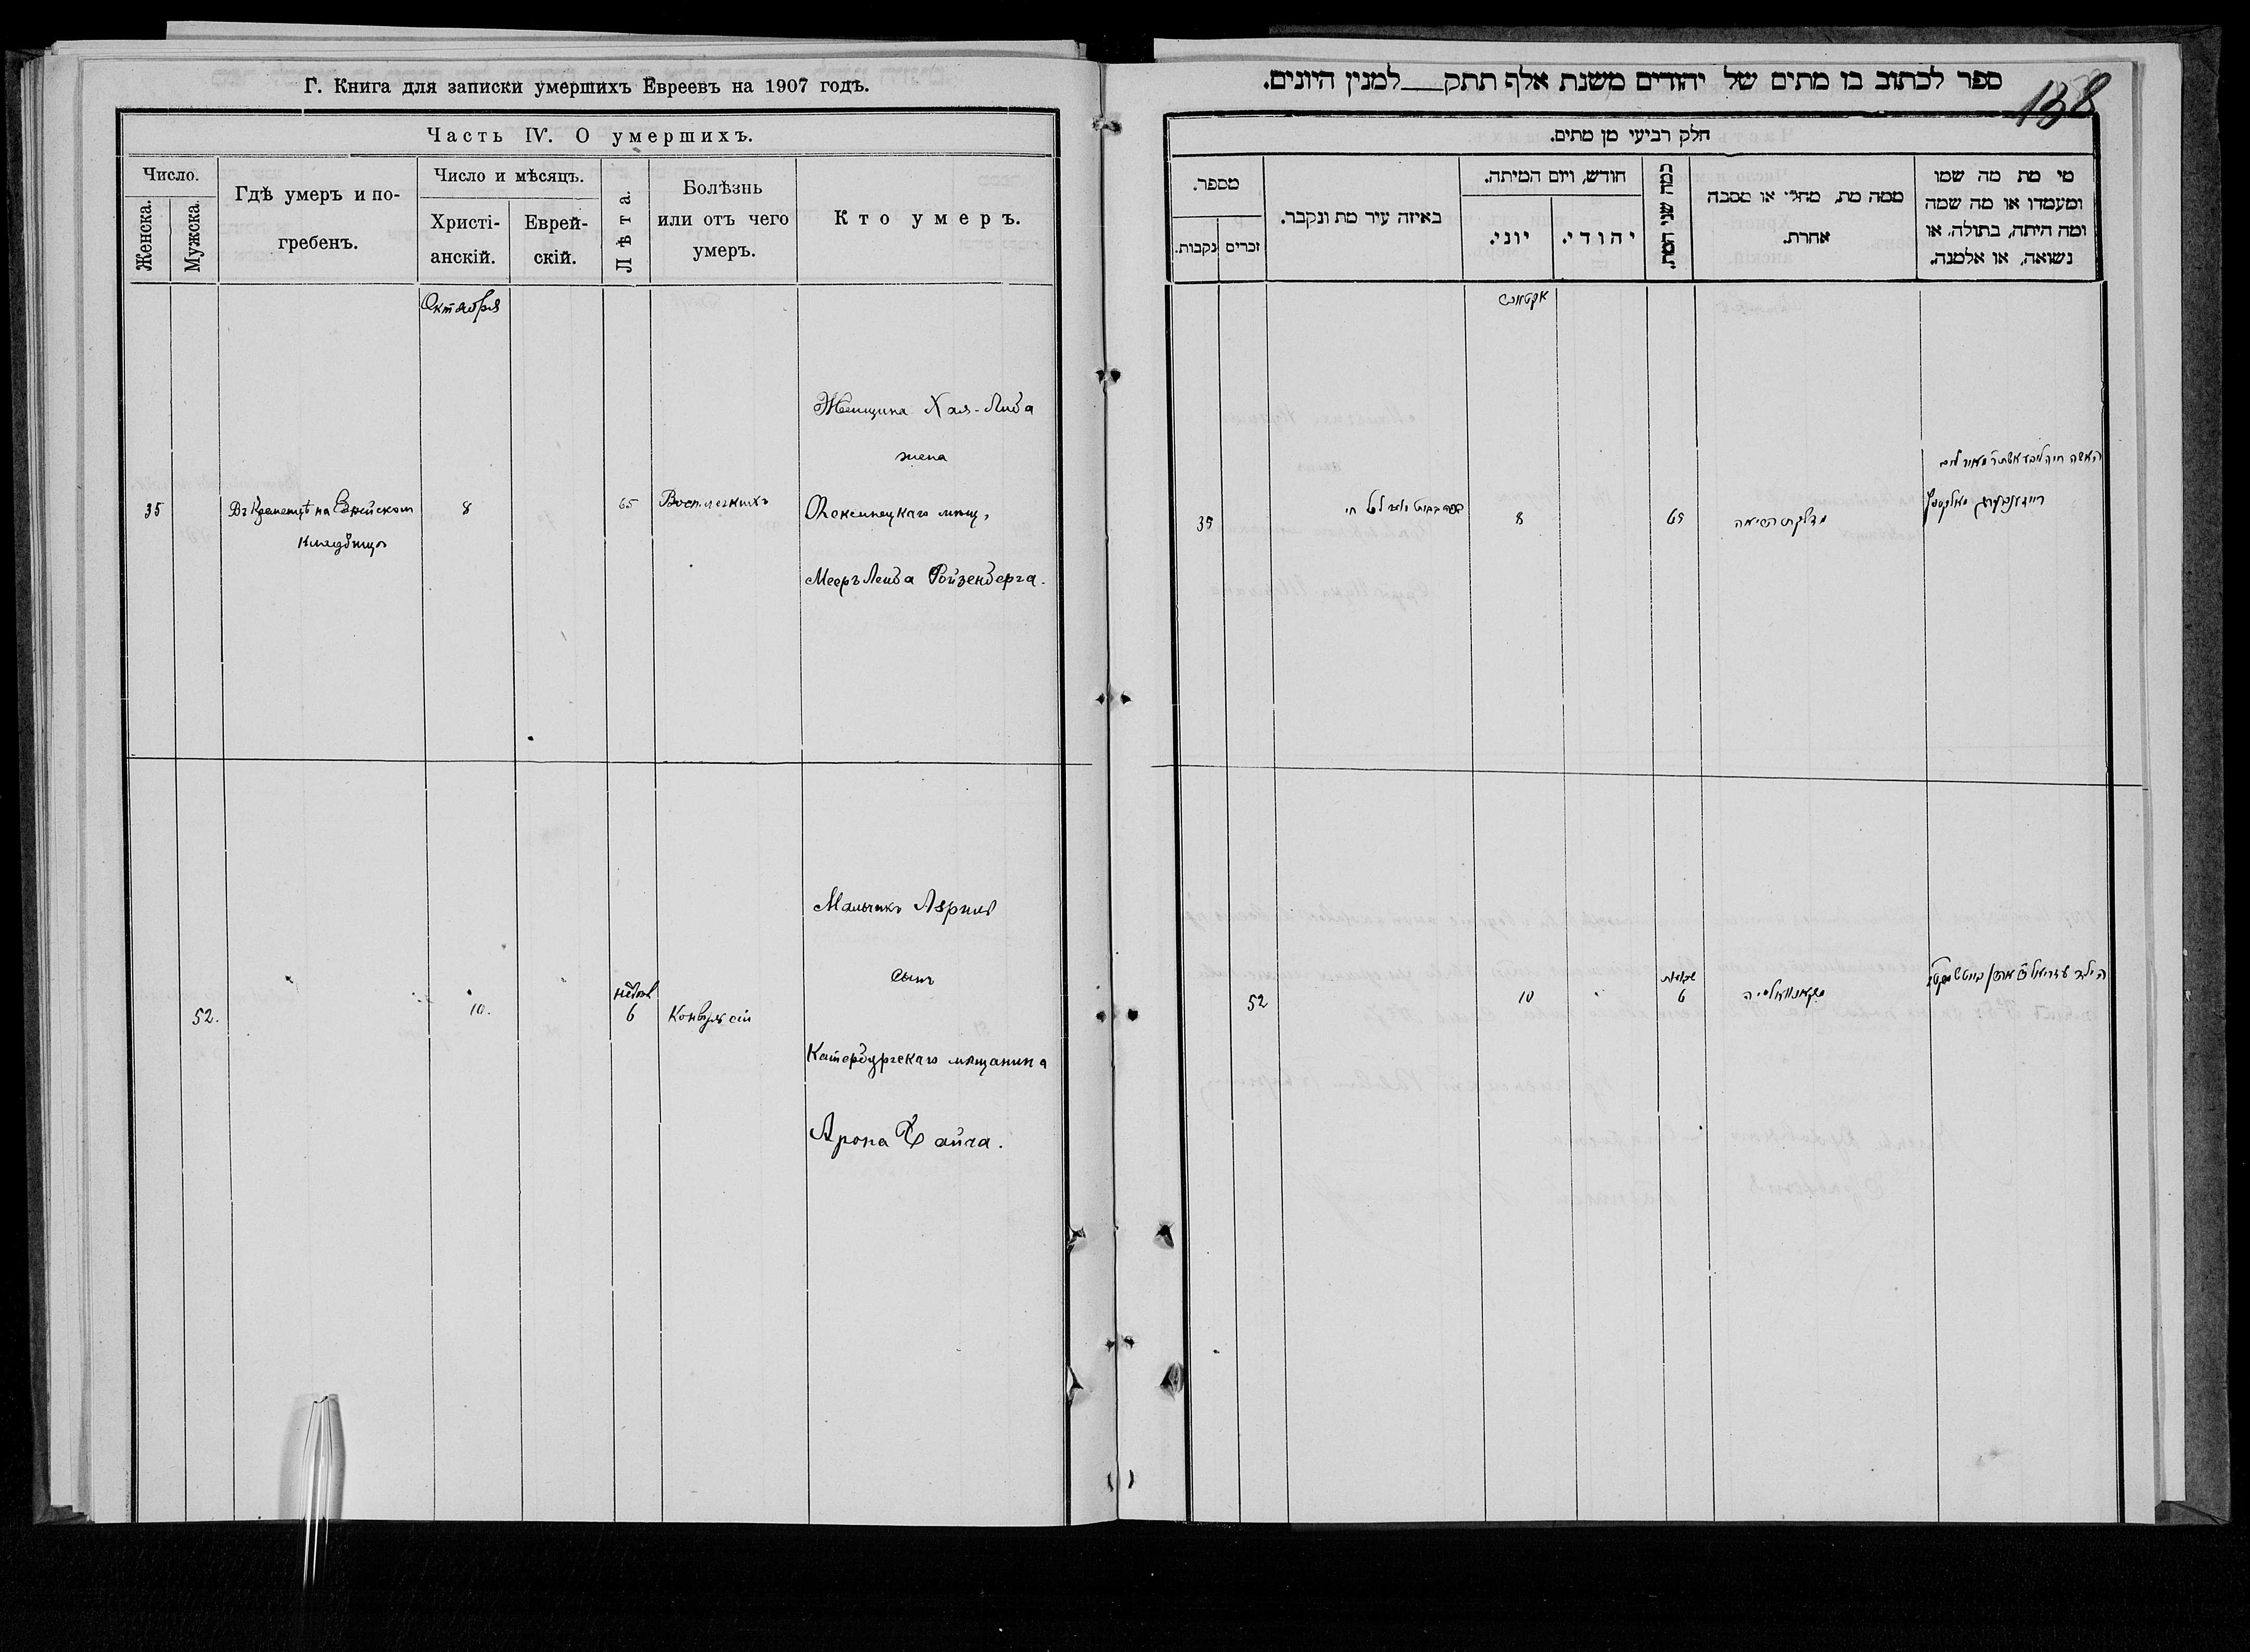 Г. Книга для записки умершихъ Евреевъ на 1907 годъ.
Часть IV. О умершихъ.
Число.
Женска.
Мужска.
Гдѣ умеръ и по-
гребенъ.
Число и мѣсяцъ.
Христі-
анскій.
Еврей-
скій.
Лѣта.
Болѣзнь
или отъ чего
умеръ.
Кто умеръ.
Октября
35
Въ Кременцѣ на Еврейском
кладбищѣ
8
65
Восп. легкихъ
Женщина Хая-Либа
жена
мѣщ.
Мееръ Лейба Ройзенберга.
52.
10.
недѣль
6
Конвульсіи
Мальчикъ Азриль
сынъ
Катербургскаго мѣщанина
Арона
138
ספר לכתוב בו מתים של יהודים משנת אלף תתק___למנין היונים.
חלק רביעי מן מתים.
מספר.
נקבות.
זכרים
באיזה עיר מת ונקבר.
חודש, ויום המיתה.
יוני.
יהודי.
כמה שני המת.
ממה מת, מחלי או מסבה
אחרת.
מי מת מה שמו
ומעמדו או מה שמה
ומה היתה, בתולה, או
נשואה, או אלמנה.
35
8
65
האשה חיה ליבע אשת ר' מאיר ליב
52
10
שבועות
6
הילד עזריאל